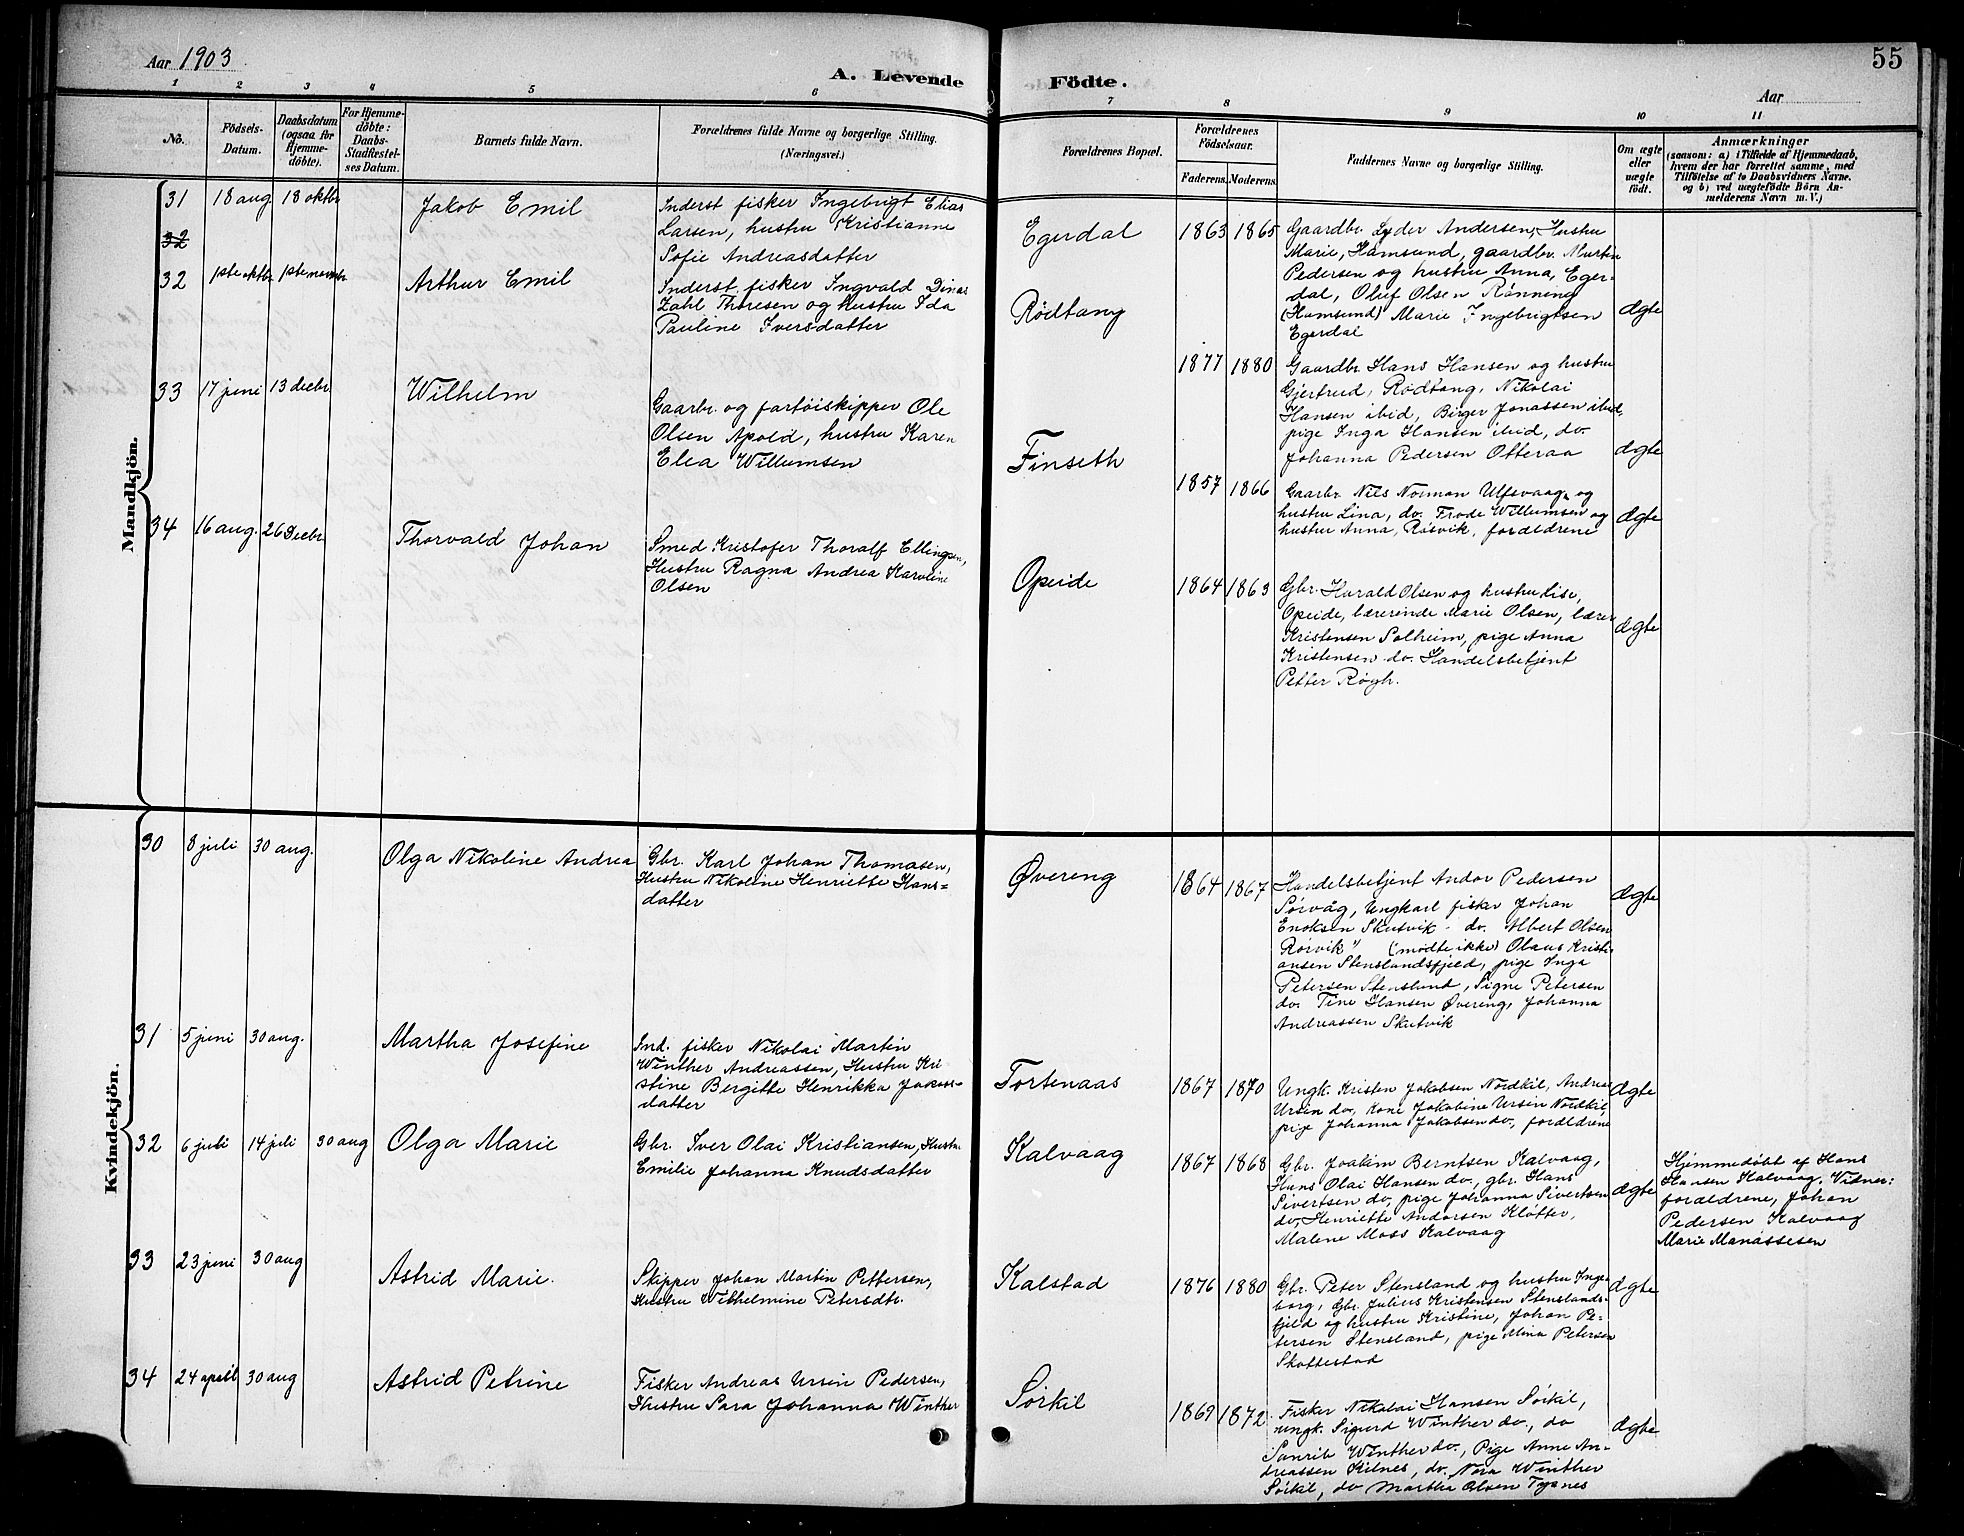 Aar 1903
A. Levende
Födte.
55
Aar
1 2 3 4 5 6 7 8 9 10 11
No.
Födsels-
Datum.
Daabsdatum
(ogsaa for
Hjemme-
döbte).
For Hjemme-
döbte:
Daabs-
Stadfæstel-
ses Datum.
Barnets fulde Navn.
Forældrenes fulde Navne og borgerlige Stilling.
(Næringsvei.)
Forældrenes Bopæl.
Forældrenes
Födselsaar.
Faderens. Moderens.
Faddernes Navne og borgerlige Stilling.
Om ægte
eller
uægte
födt.
Anmærkninger
(saasom: a) i Tilfælde af Hjemmedaab,
hvem der har forrettet samme, med
Tilföielse af to Daabsvidners Navne,
og b) ved uægtefödte Börn An-
melderens Navn m. V.)
Mandkjön.
31 18 aug 18 oktbr Jakob Emil
Inderst fisker Ingebrigt Elias
Larsen, hustru Kristianne
Sofie Andreasdatter
Egerdal 1863 1865
Gaardbr Lyder Andersen, Hustru
Marie, Hamsund, gaardbr. Martin
Pedersen og hustru Anna, Eger-
dal, Oluf Olsen Rönning
(Hamsund) Marie Ingebrigtsen
Egerdal
ægte
32
32 1ste oktbr. 1ste novembr. Arthur Emil
Inderst. fisker Ingvald Dinas
Zahl Thoresen og Hustru Ida
Pauline Iversdatter
Rödtang 1877 1880
Gaardbr Hans Hansen og hustru
Gjertrud, Rödtang, Nikolai
Hansen ibid, Birger Jonassen ibid,
pige Inga Hansen ibid, do.
Johanna Pedersen Otteraa
ægte
33 17 juni 13 decbr Wilhelm
Gaarbr. og fartöiskipper Ole
Olsen Apold, hustru Karen
Elea Willumsen
Finseth 1857 1866
Gaarbr Nils Norman Ulfsvaag og
hustru Lina, do. Frode Willumsen og
hustru Anna, Rösvik, forældrene
ægte
34 16 aug. 26 Decbr Thorvald Johan
Smed Kristofer Thoralf Ellingsen,
Hustru Ragna Andrea Karoline
Olsen
Opeide 1864 1863
Gbr. Harald Olsen og hustru Lise,
Opeide, lærerinde Marie Olsen, lærer
Kristensen Solheim, pige Anna
Kristensen do. Handelsbetjent
Petter Rögh.
ægte
Kvindekjön.
30 8 juli 30 aug. Olga Nikoline Andrea
Gbr. Karl Johan Thomasen,
Hustru Nikoline Henriette Hans=
datter
Övereng 1864 1867
Handelsbetjent Andor Pedersen
Sörvåg, Ungkarl fisker Johan
Enoksen Skutvik - do. Albert Olsen
Rörvik" (mödte ikke) Olaus Kristi-
ansen Stenslandsfjeld, pige Inga
Petersen Stensland, Signe Petersen
do. Tine Hansen Övereng, Johanna
Andreassen Skutvik
ægte
31 5 juni 30 aug. Martha Josefine
Ind. fisker Nikolai Martin
Winther Andreassen, Hustru Kri-
stine Bergitte Henrikka Jakobs-
datter
Tortenaas 1867 1870
Ungk. Kristen Jakobsen Nordkil, Andreas
Ursin do, kone Jakobine Ursin Nordkil,
pige Johanna Jakobsen do., forældrene
ægte
32 6 juli 14 juli 30 aug Olga Marie
Gbr. Iver Olai Kristiansen, Hustru
Emilie Johanna Knudsdatter
Kalvaag 1867 1868
Gbr. Joakim Berntsen Kalvaag,
Hans Olai Hansen do., gbr. Hans
Sivertsen do, pige Johanna Sivertsen
do, Henriette Andorsen Klöfter,
Malene Moss Kalvaag
ægte
Hjemmedöbt af Hans
Hansen Kalvaag. Vidner:
forældrene, Johan
Pedersen Kalvaag
Marie Manassesen
33 23 juni 30 aug Astrid Marie.
Skipper Johan Martin Pettersen,
Hustru Wilhelmine Petersdtr.
Kalstad 1876 1880
Gbr. Peter Stensland og hustru Inge-
borg, Gbr. Julius Kristensen Stenslands-
fjeld og hustru Kristine, Johan Pe-
tersen Stensland, pige Mina Petersen
Skottestad
ægte
34 24 april 30 aug Astrid Petrine
Fisker Andreas Ursin Pedersen,
Hustru Sara Johanna Winther
Sörkil 1869 1872
Fisker Nikolai Hansen Sörkil,
ungk. Sigurd Winther do., do
Winther do., Pige Anne An-
dreassen Kilnes, do. Nora Winther
Sörkil, do Martha Olsen
ægte